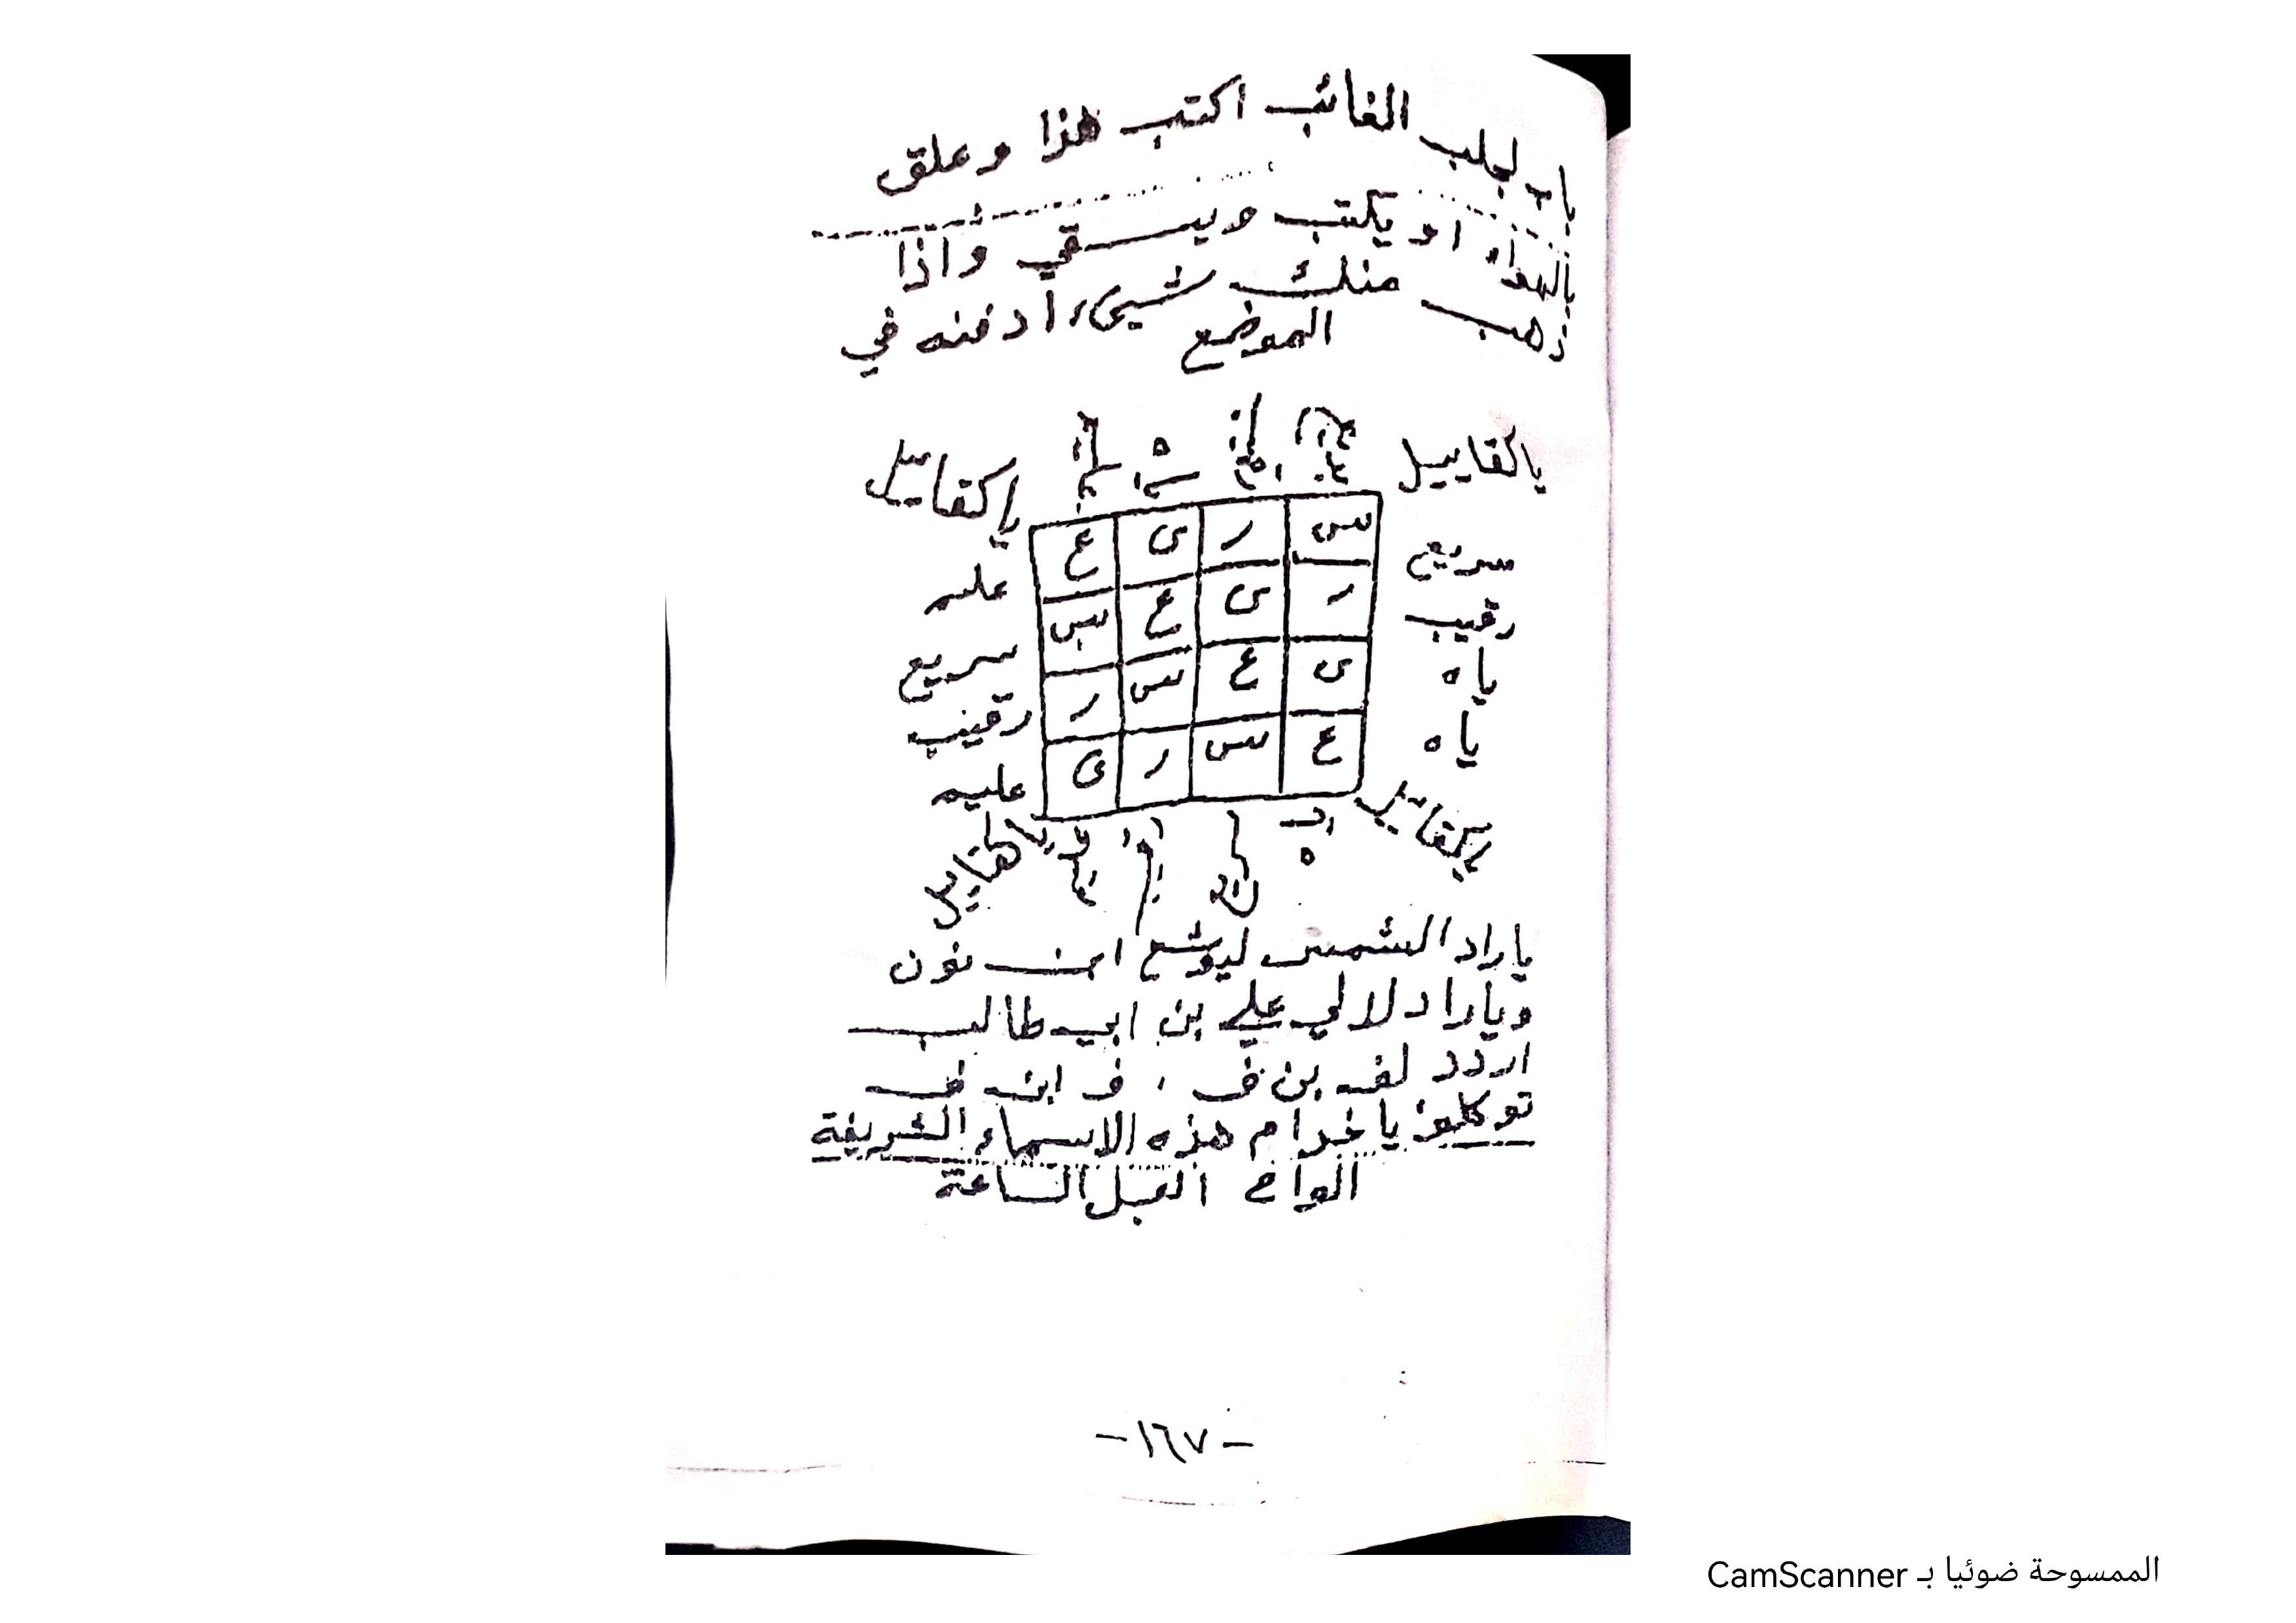 باب لجلب الغائب اكتب هذا وعلق
بالهواء او يكتب ويسقي واذا
ذهب منك شيىء ادفنه في
الموضع
يالقاييل
سريع
رقيب
ياه
ياه
عليم
سريع
رقيب
عليم
س ر ى ع
ر ى ع س
ى ع س ر
ع س ر ى
ياراد الشمس ليوشع ابن نون
وياراد لالي علي بن ابي طالب
اردد لف بن ف ، ف ابن ف
توكلو يا خدام هذه الاسماء الشريفة
الواح العجل الساعة
-١٦٧-
الممسوحة ضوئيا بـ CamScanner